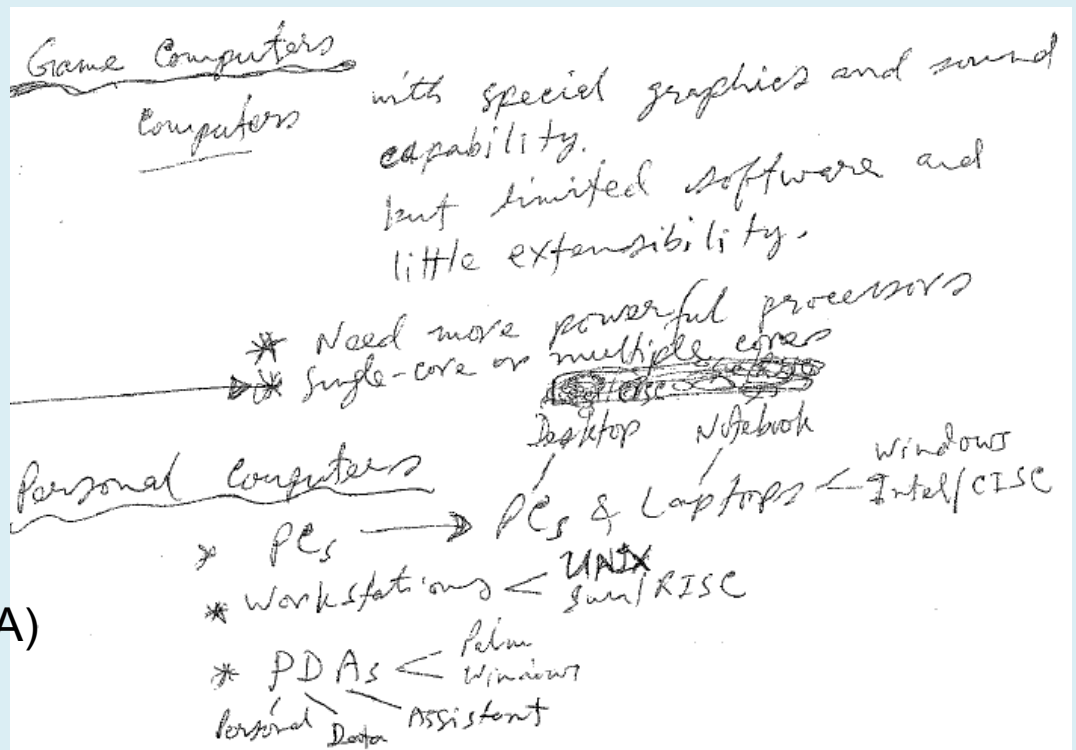 Game Computers
Computers with special graphics and sound
capability.
but limited software and
little extensibility.
* Need more powerful processors
* Single-core or multiple cores
Desktop Notebook
Personal Computers
* PCs → PCs & Laptops < Windows
Intel/CISC
* Workstations < UNIX
Sun/RISC
A)
* PDAs < Palm
Windows
Personal Data Assistant